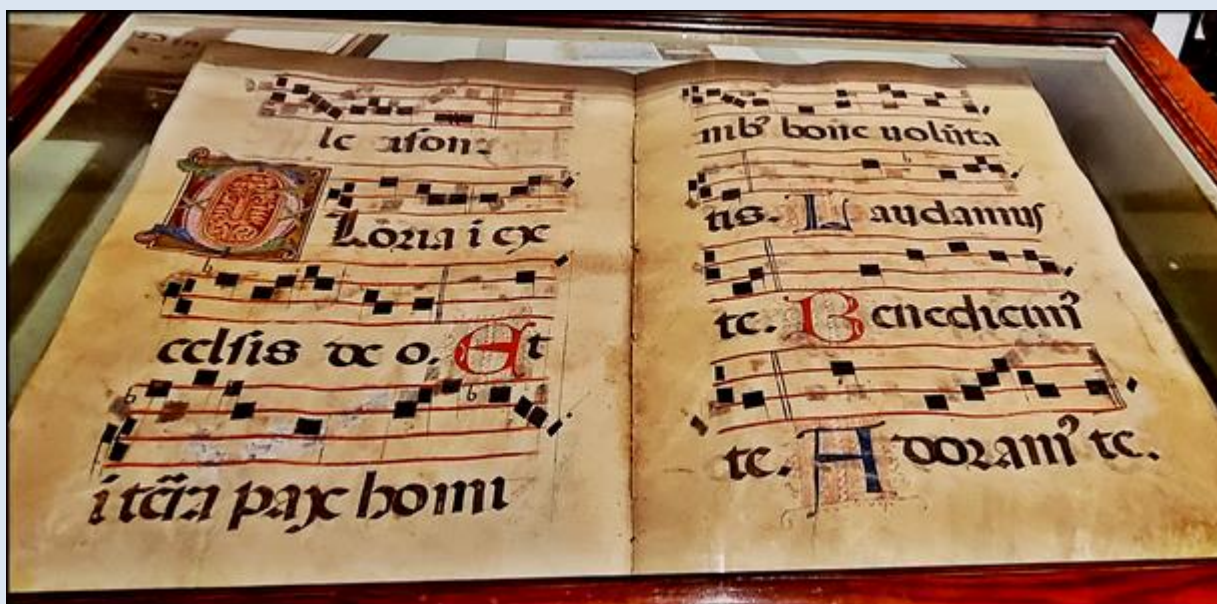 le  ison.
Loria i ex
celsis de o. Et
i tr̃a pax homi
nibꝰ bone uolũta
tis. Laudamus
te. Benedicimꝰ
te. Adoramꝰ te.